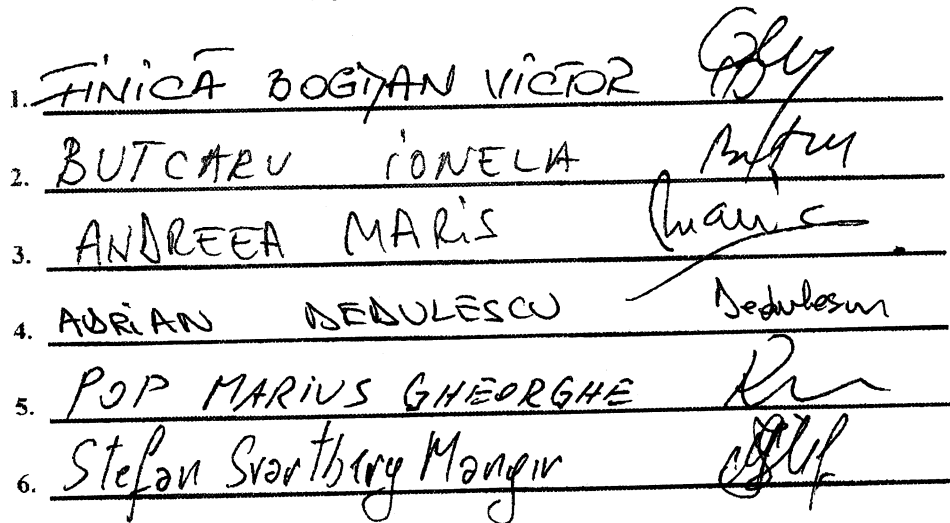 1. FINICĂ BOGDAN VICTOR
2. BUTCARU IONELA
3. ANDREEA MARIS Maris
4. ADRIAN DEDULESCU Dedulescu
5. POP MARIUS GHEORGHE
6. Stefan Svartberg Mangir